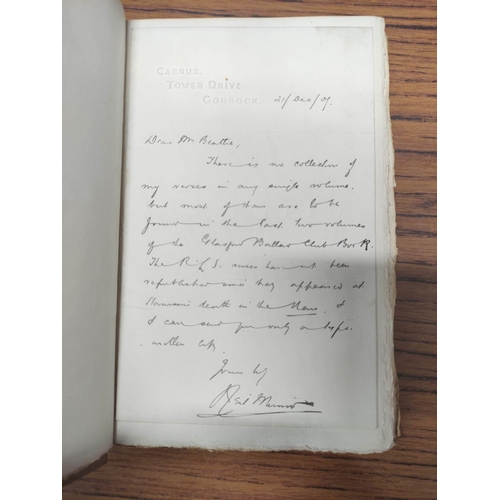 CARNUS,
TOWER DRIVE,
GOUROCK.
21/Dec/07.
Dear Mr Beattie,
There is no collection of
my verses in any single volume,
but most of them are to be
found in the last two volumes
of the Glasgow Ballad Club Book.
The R L S verses have not been
republished since they appeared at
Stevenson's death in the News. &
I can send you only a type-
written copy.
Yours try
Neil Munro